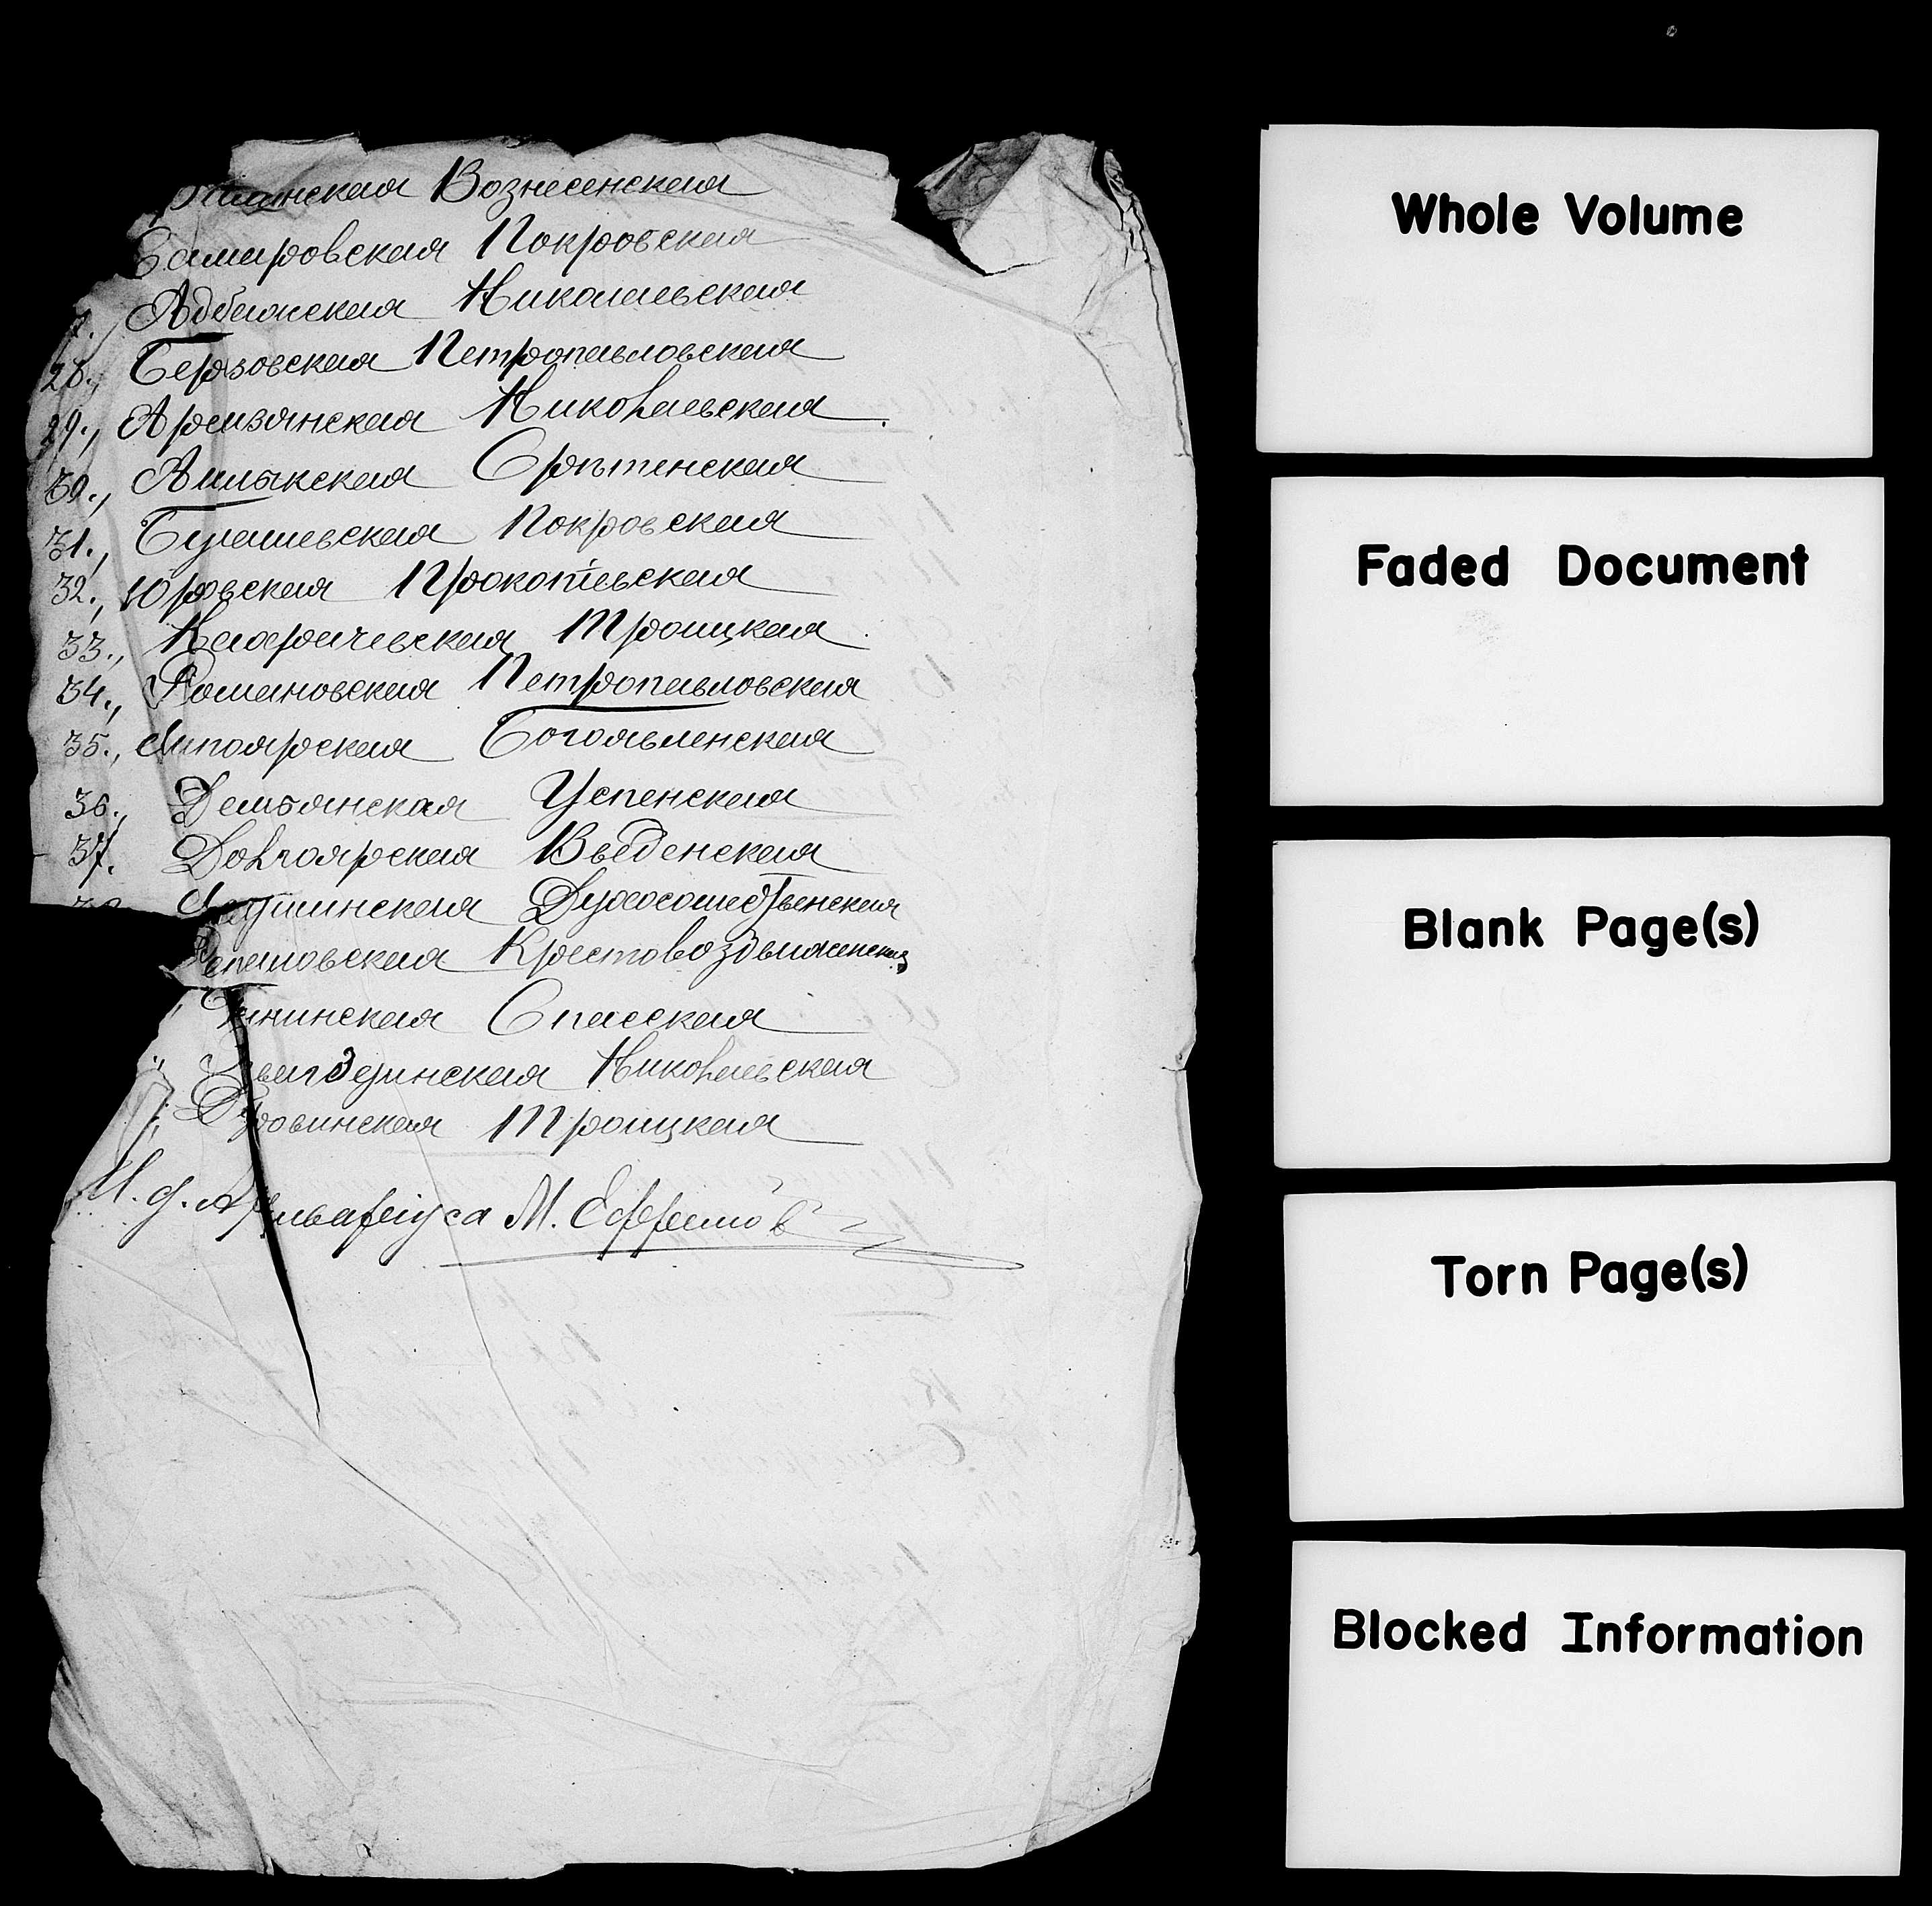 Вознесенская
Самаровская Покровская
Адбажская Николаевская
28., Березовская Петропавловская
29., Аремзянская Николаевская
30., Ашлыкская Срѣтенская
31., Бугашевская Покровская
32., Юровская Прокопіевская
33., Карачевская Троицкая
34., Романовская Петропавловская
35., Липоярская Богоявленская
36., Демьянская Успенская
37. Долгоярская Введенская
Духосошественская
Крестовоздвиженская
Спасская
Николаевская
Троицкая
И. д. Архиваріуса М. Ефремовъ
Whole Volume
Faded Document
Blank Page(s)
Torn Page(s)
Blocked Information